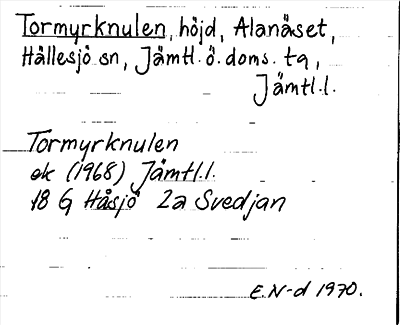 Tormyrknulen, höjd, Alanäset,
Hällesjö sn, Jämtl. ö. doms. tg,
Jämtl.l.
Tormyrknulen
ek (1968) Jämtl.l.
18 G Håsjö 2a Svedjan
E.N-d 1970.